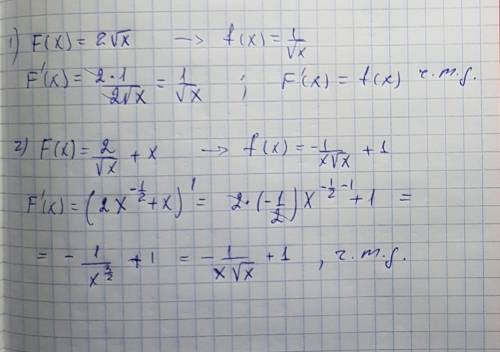 1) F(x) = 2√x → f(x) = 1/√x
F'(x) = 2·1/2√x = 1/√x ; F'(x) = f(x) ч.т.д.
2) F(x) = 2/√x + x → f(x) = -1/x√x + 1
F'(x) = (2x^{-1/2} + x)' = 2·(-1/2)x^{-1/2 - 1} + 1 =
= - 1/x^{3/2} + 1 = - 1/x√x + 1 , ч.т.д.